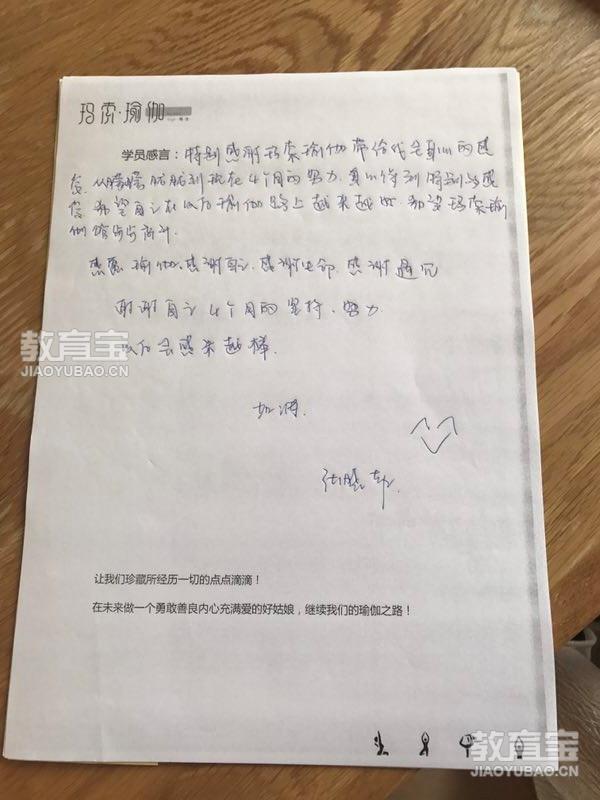 玛索·瑜伽
学员感言：特别感谢玛索瑜伽带给我全身心的感
受，从朦朦胧胧到现在4个月的努力，真心得到特别多感
受，希望自己在以后瑜伽路上越来越好，希望玛索瑜
伽馆步步高升。
感恩瑜伽，感谢自己，感谢生命，感谢遇见
谢谢自己4个月的坚持、努力
以后会越来越棒
加油
让我们珍藏所经历一切的点点滴滴！
在未来做一个勇敢善良内心充满爱的好姑娘，继续我们的瑜伽之路！
教育宝
JIAOYUBAO.CN
教育宝
JIAOYUBAO.CN